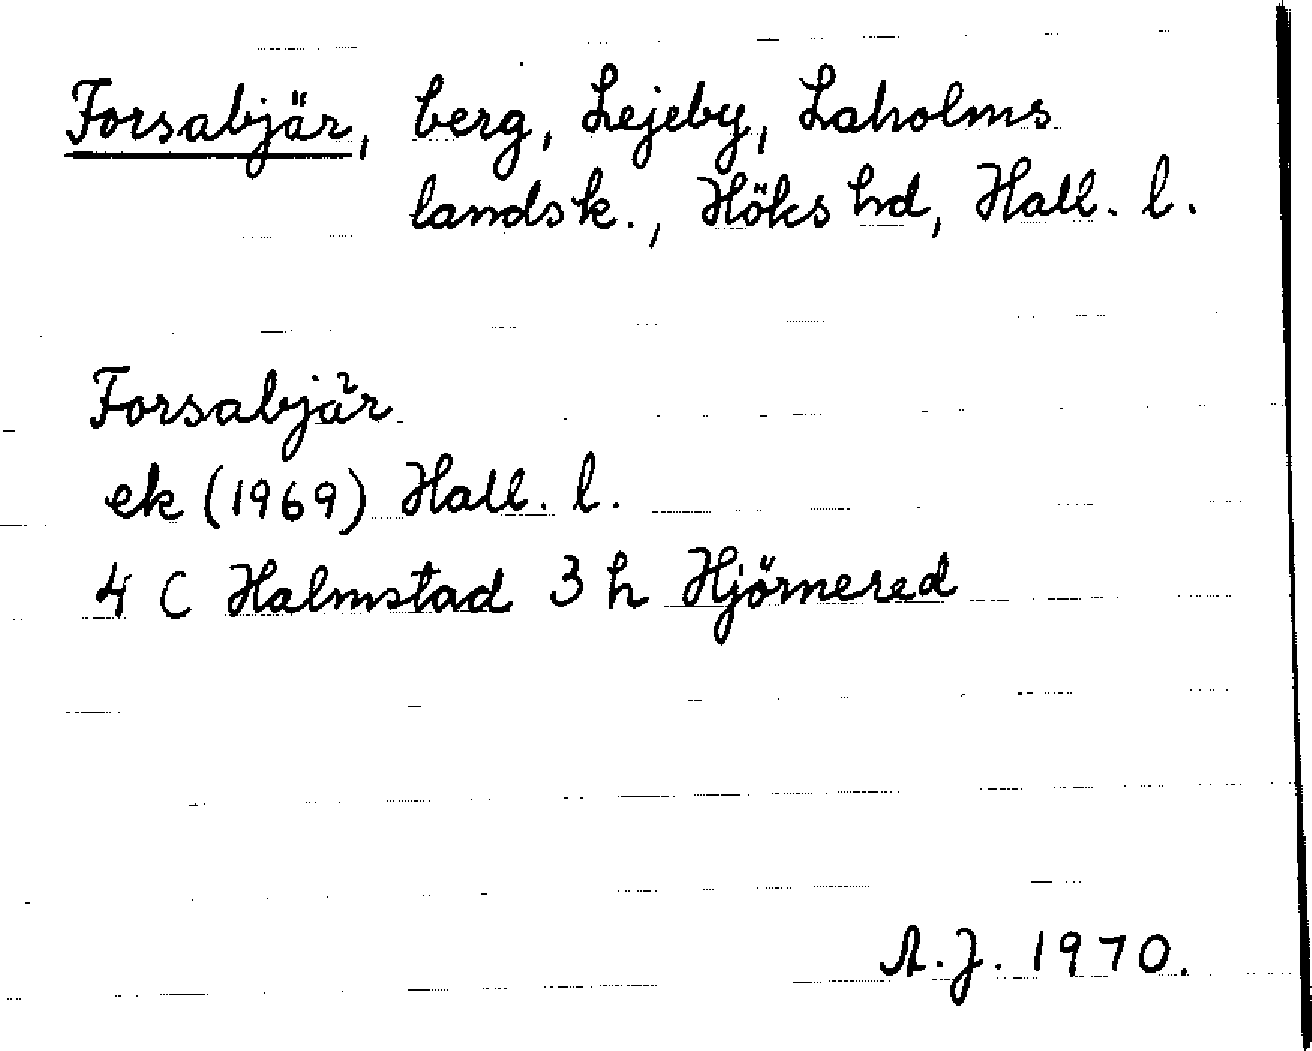 Forsabjär, berg, Lejeby, Laholms
landsk., Höks hd, Hall. l.
Forsabjär
ek (1969) Hall. l.
4 C Halmstad 3 h Hjörnered
A.J. 1970.